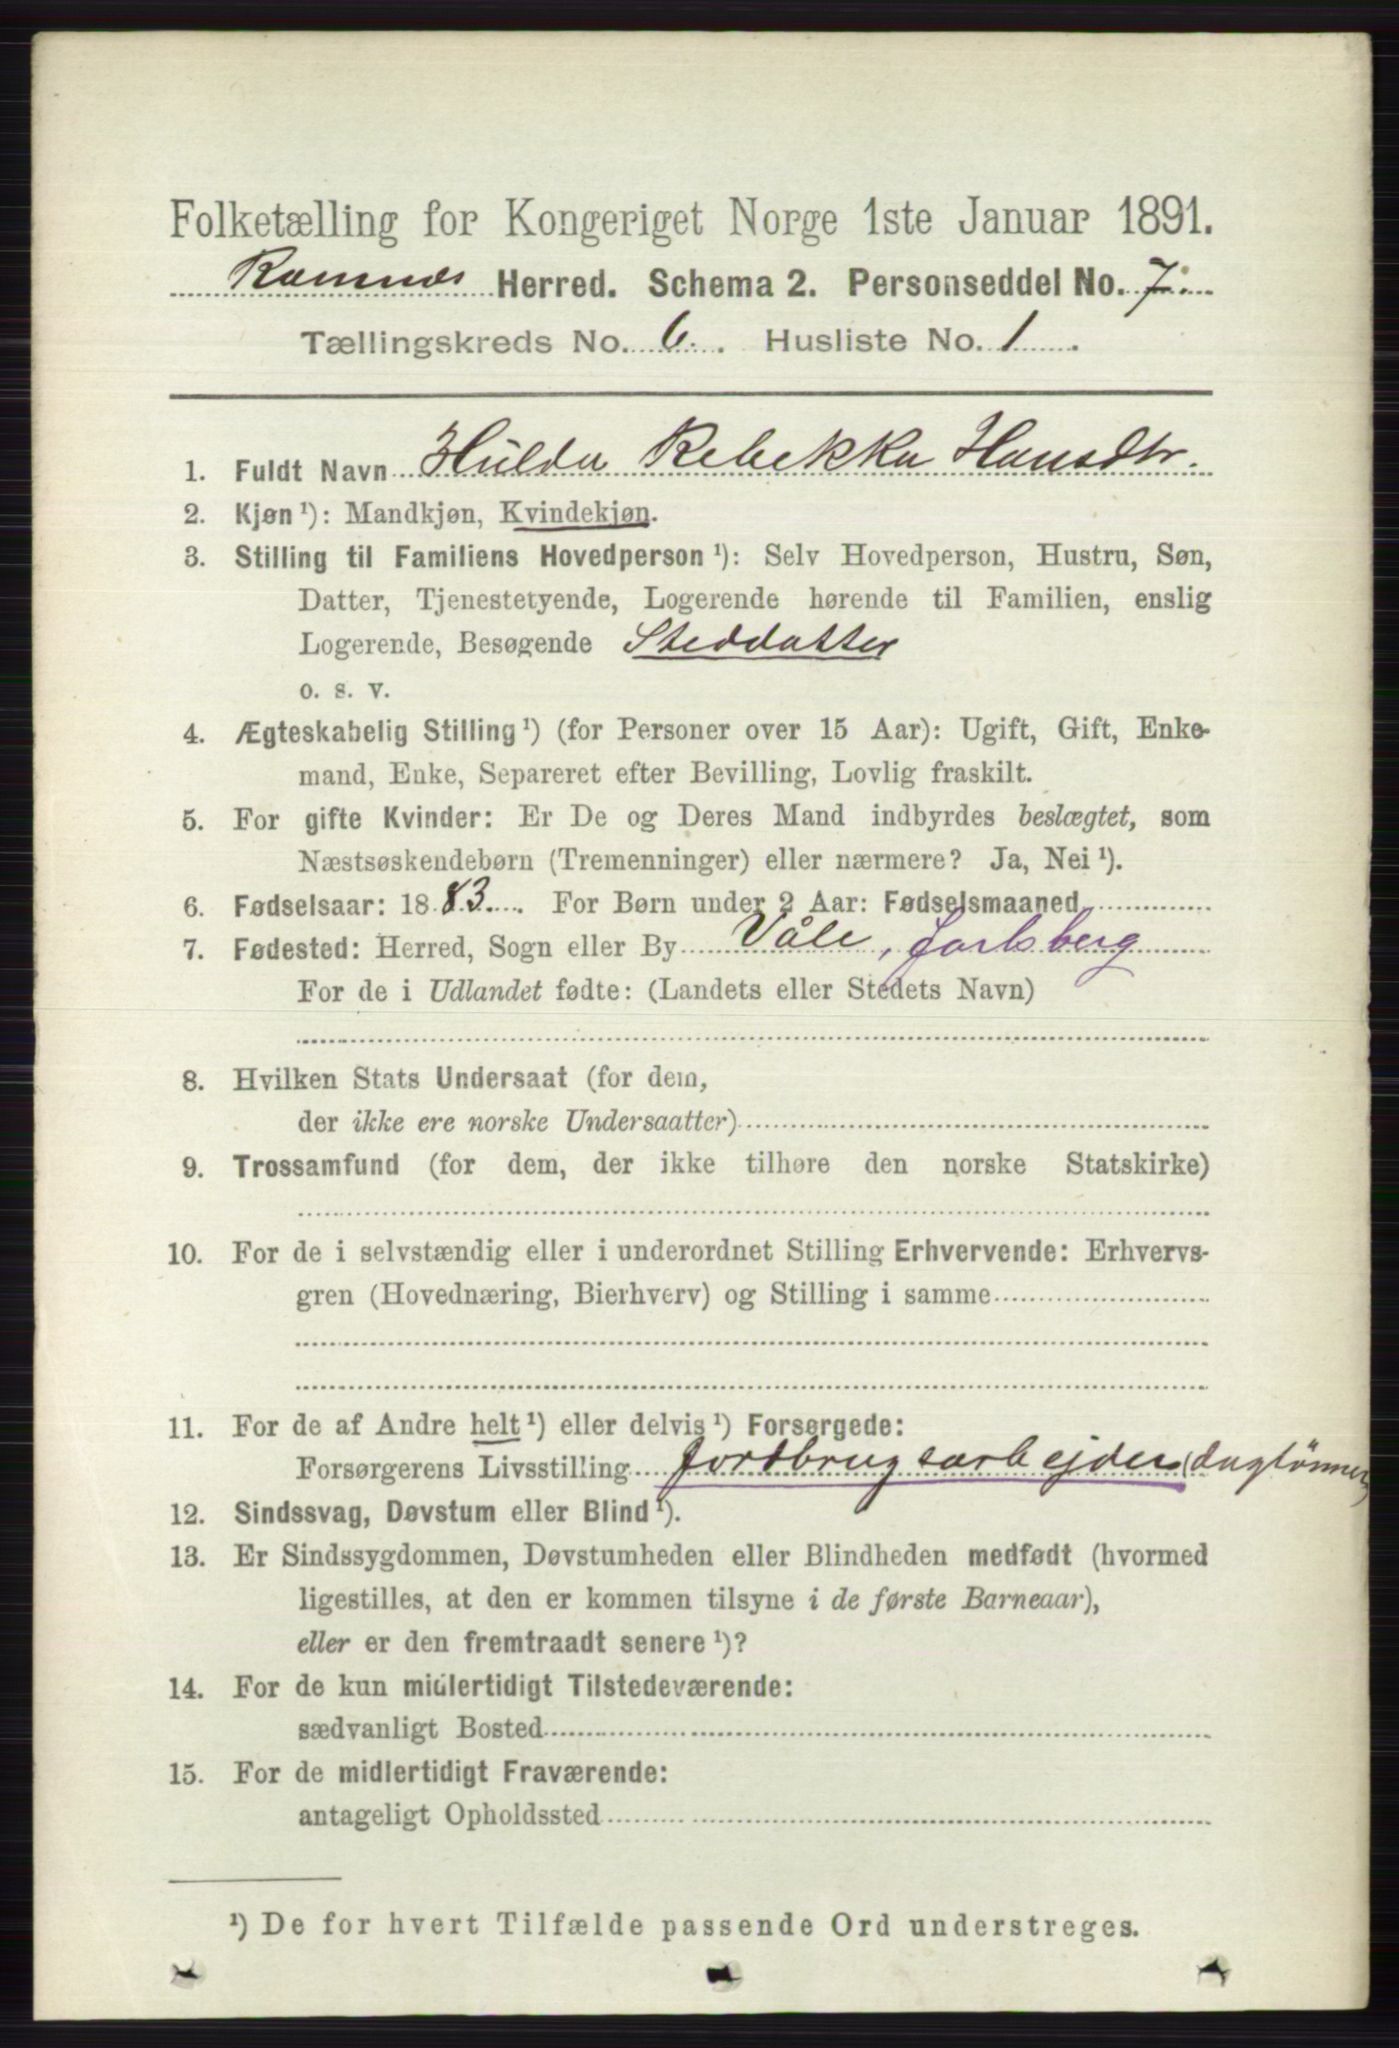 Folketælling for Kongeriget Norge 1ste Januar 1891.
Ramnæs Herred. Schema 2. Personseddel No. 7.
Tællingskreds No. 6. Husliste No. 1.
1. Fuldt Navn Hulda Rebekka Hansdtr.
2. Kjøn ¹): Mandkjøn, Kvindekjøn.
3. Stilling til Familiens Hovedperson ¹): Selv Hovedperson, Hustru, Søn,
Datter, Tjenestetyende, Logerende hørende til Familien, enslig
Logerende, Besøgende Steddatter
o. s. v.
4. Ægteskabelig Stilling ¹) (for Personer over 15 Aar): Ugift, Gift, Enke-
mand, Enke, Separeret efter Bevilling, Lovlig fraskilt.
5. For gifte Kvinder: Er De og Deres Mand indbyrdes beslægtet, som
Næstsøskendebørn (Tremenninger) eller nærmere? Ja, Nei ¹).
6. Fødselsaar: 1883. For Børn under 2 Aar: Fødselsmaaned
7. Fødested: Herred, Sogn eller By Våle, Jarlsberg
For de i Udlandet fødte: (Landets eller Stedets Navn)
8. Hvilken Stats Undersaat (for dem,
der ikke ere norske Undersaatter)
9. Trossamfund (for dem, der ikke tilhøre den norske Statskirke)
10. For de i selvstændig eller i underordnet Stilling Erhvervende: Erhvervs-
gren (Hovednæring, Bierhverv) og Stilling i samme
11. For de af Andre helt ¹) eller delvis ¹) Forsørgede:
Forsørgerens Livsstilling Jordbrugsarbejder (daglønner)
12. Sindssvag, Døvstum eller Blind ¹).
13. Er Sindssygdommen, Døvstumheden eller Blindheden medfødt (hvormed
ligestilles, at den er kommen tilsyne i de første Barneaar),
eller er den fremtraadt senere ¹)?
14. For de kun midlertidigt Tilstedeværende:
sædvanligt Bosted
15. For de midlertidigt Fraværende:
antageligt Opholdssted
¹) De for hvert Tilfælde passende Ord understreges.